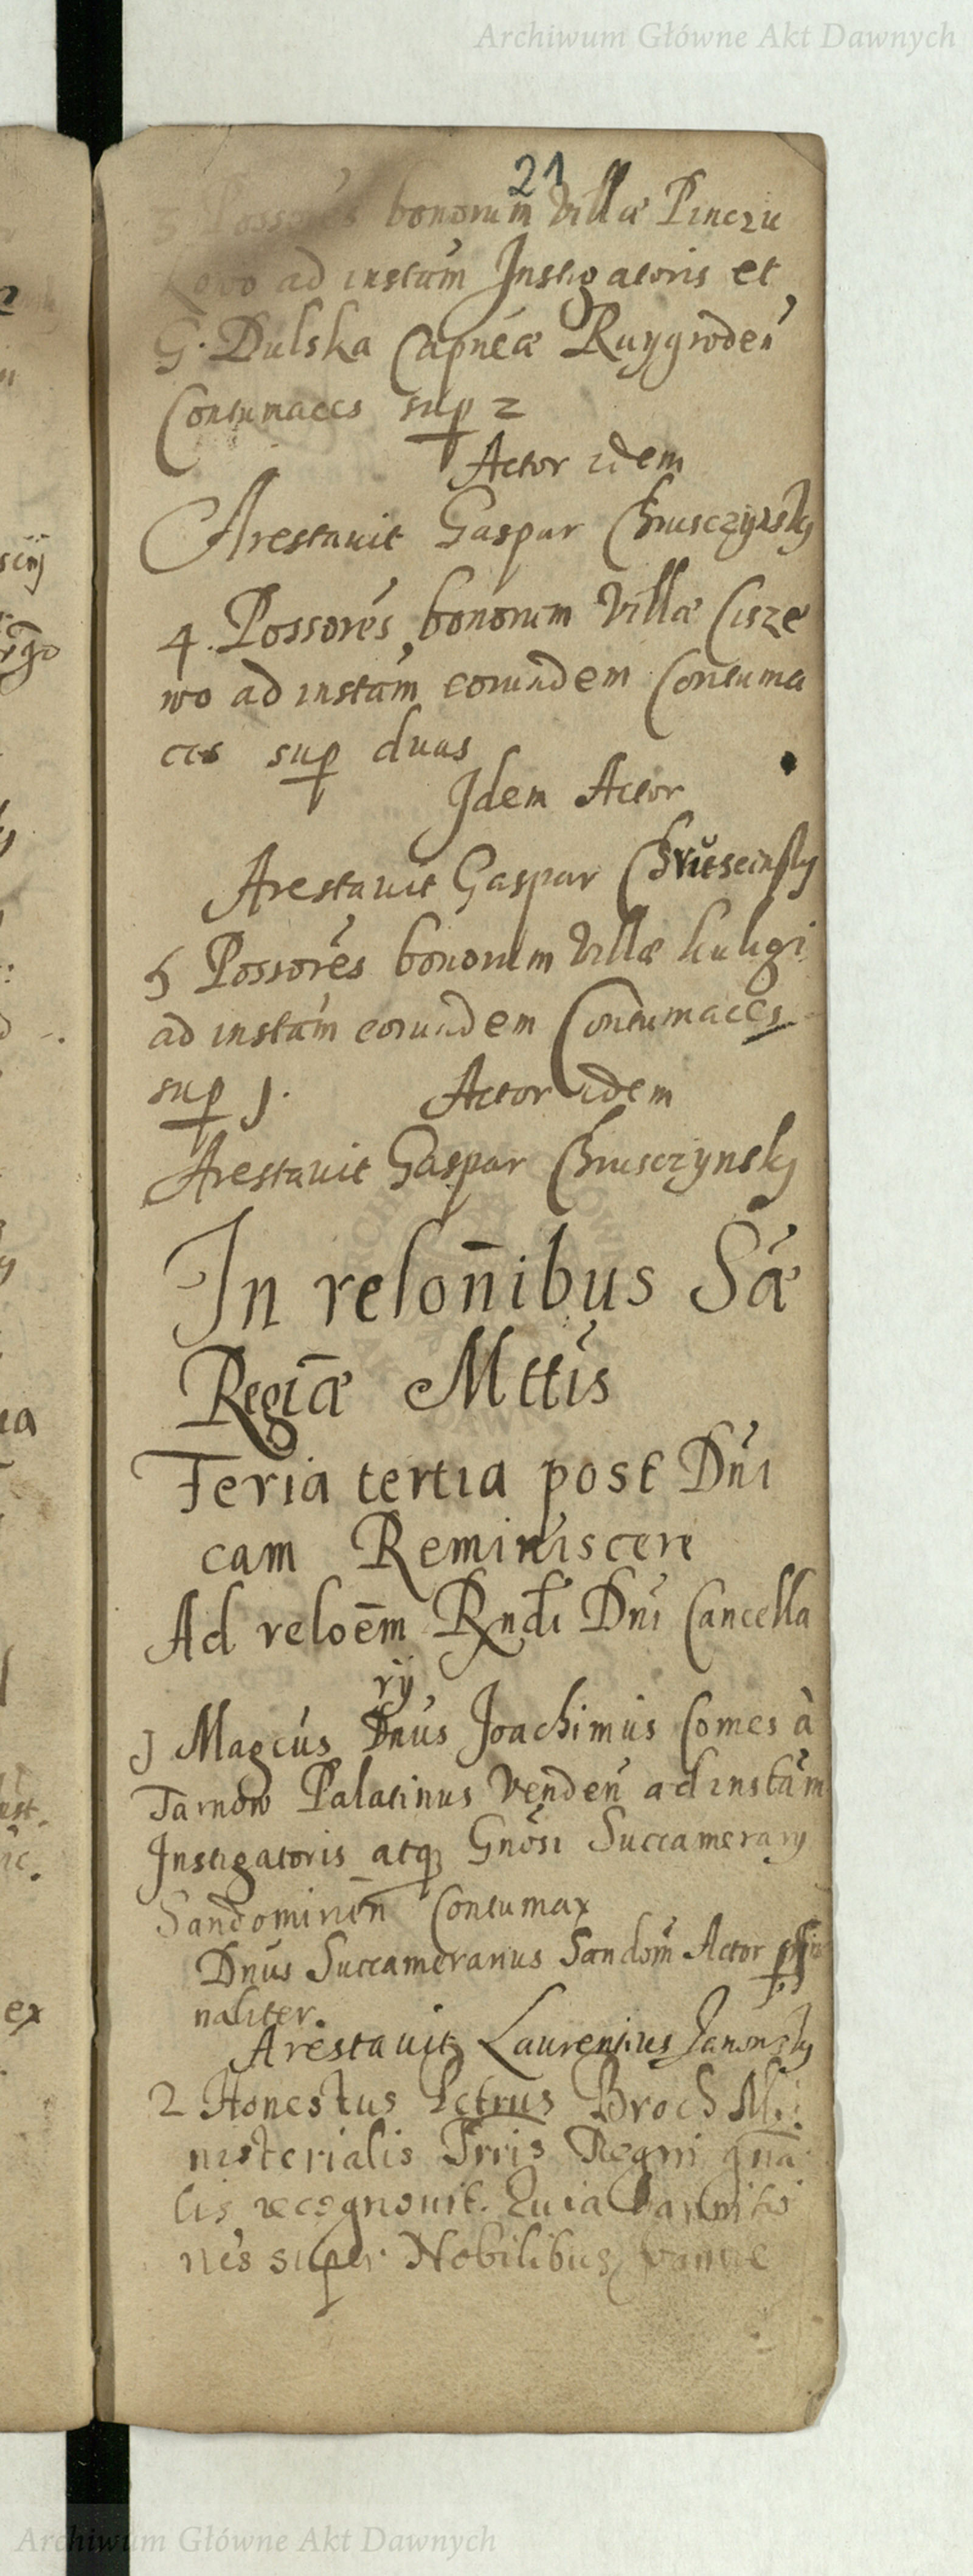 Archiwum Główne Akt Dawnych
21
3 Possorés bonorum villæ Pinczu
kowo ad instam̃ Instigatoris et
G. Dulska Capneæ Raygrodeń
Contumaces sup 2
Actor idem
Arestauit Gaspar Chrusczynsky
4. Possorés bonorum Villæ Cisze
wo ad instam̃ eorundem Contuma
ces sup duas
Idem Actor
Arestauit Gaspar
5 Possorés bonorum Villæ kuligi
ad instam̃ eorundem Contumaces
sup 1. Actor idem
Arestauit Gaspar Chrusczynsky
In relon̄ibus Sæ
Regiæ Mttis
Feria tertia post Dñi
cam Reminiscere
Ad reloēm Rndi Dni Cancella
rij
1 Magcus Dnus Joachimus Comes à
Tarnow Palatinus Vendeñ ad instam̃
Instigatoris atq Gnosi Succamerarij
Sandomireñ Contumax
Dnus Succamerarius Sandom̃ Actor
naliter.
Arestauit Laurentius Janowsky
2 Honestus Petrus Broch Mi:
nisterialis Prris Regni gña
lis recognouit. Quia
nes super Nobilibus
Archiwum Główne Akt Dawnych